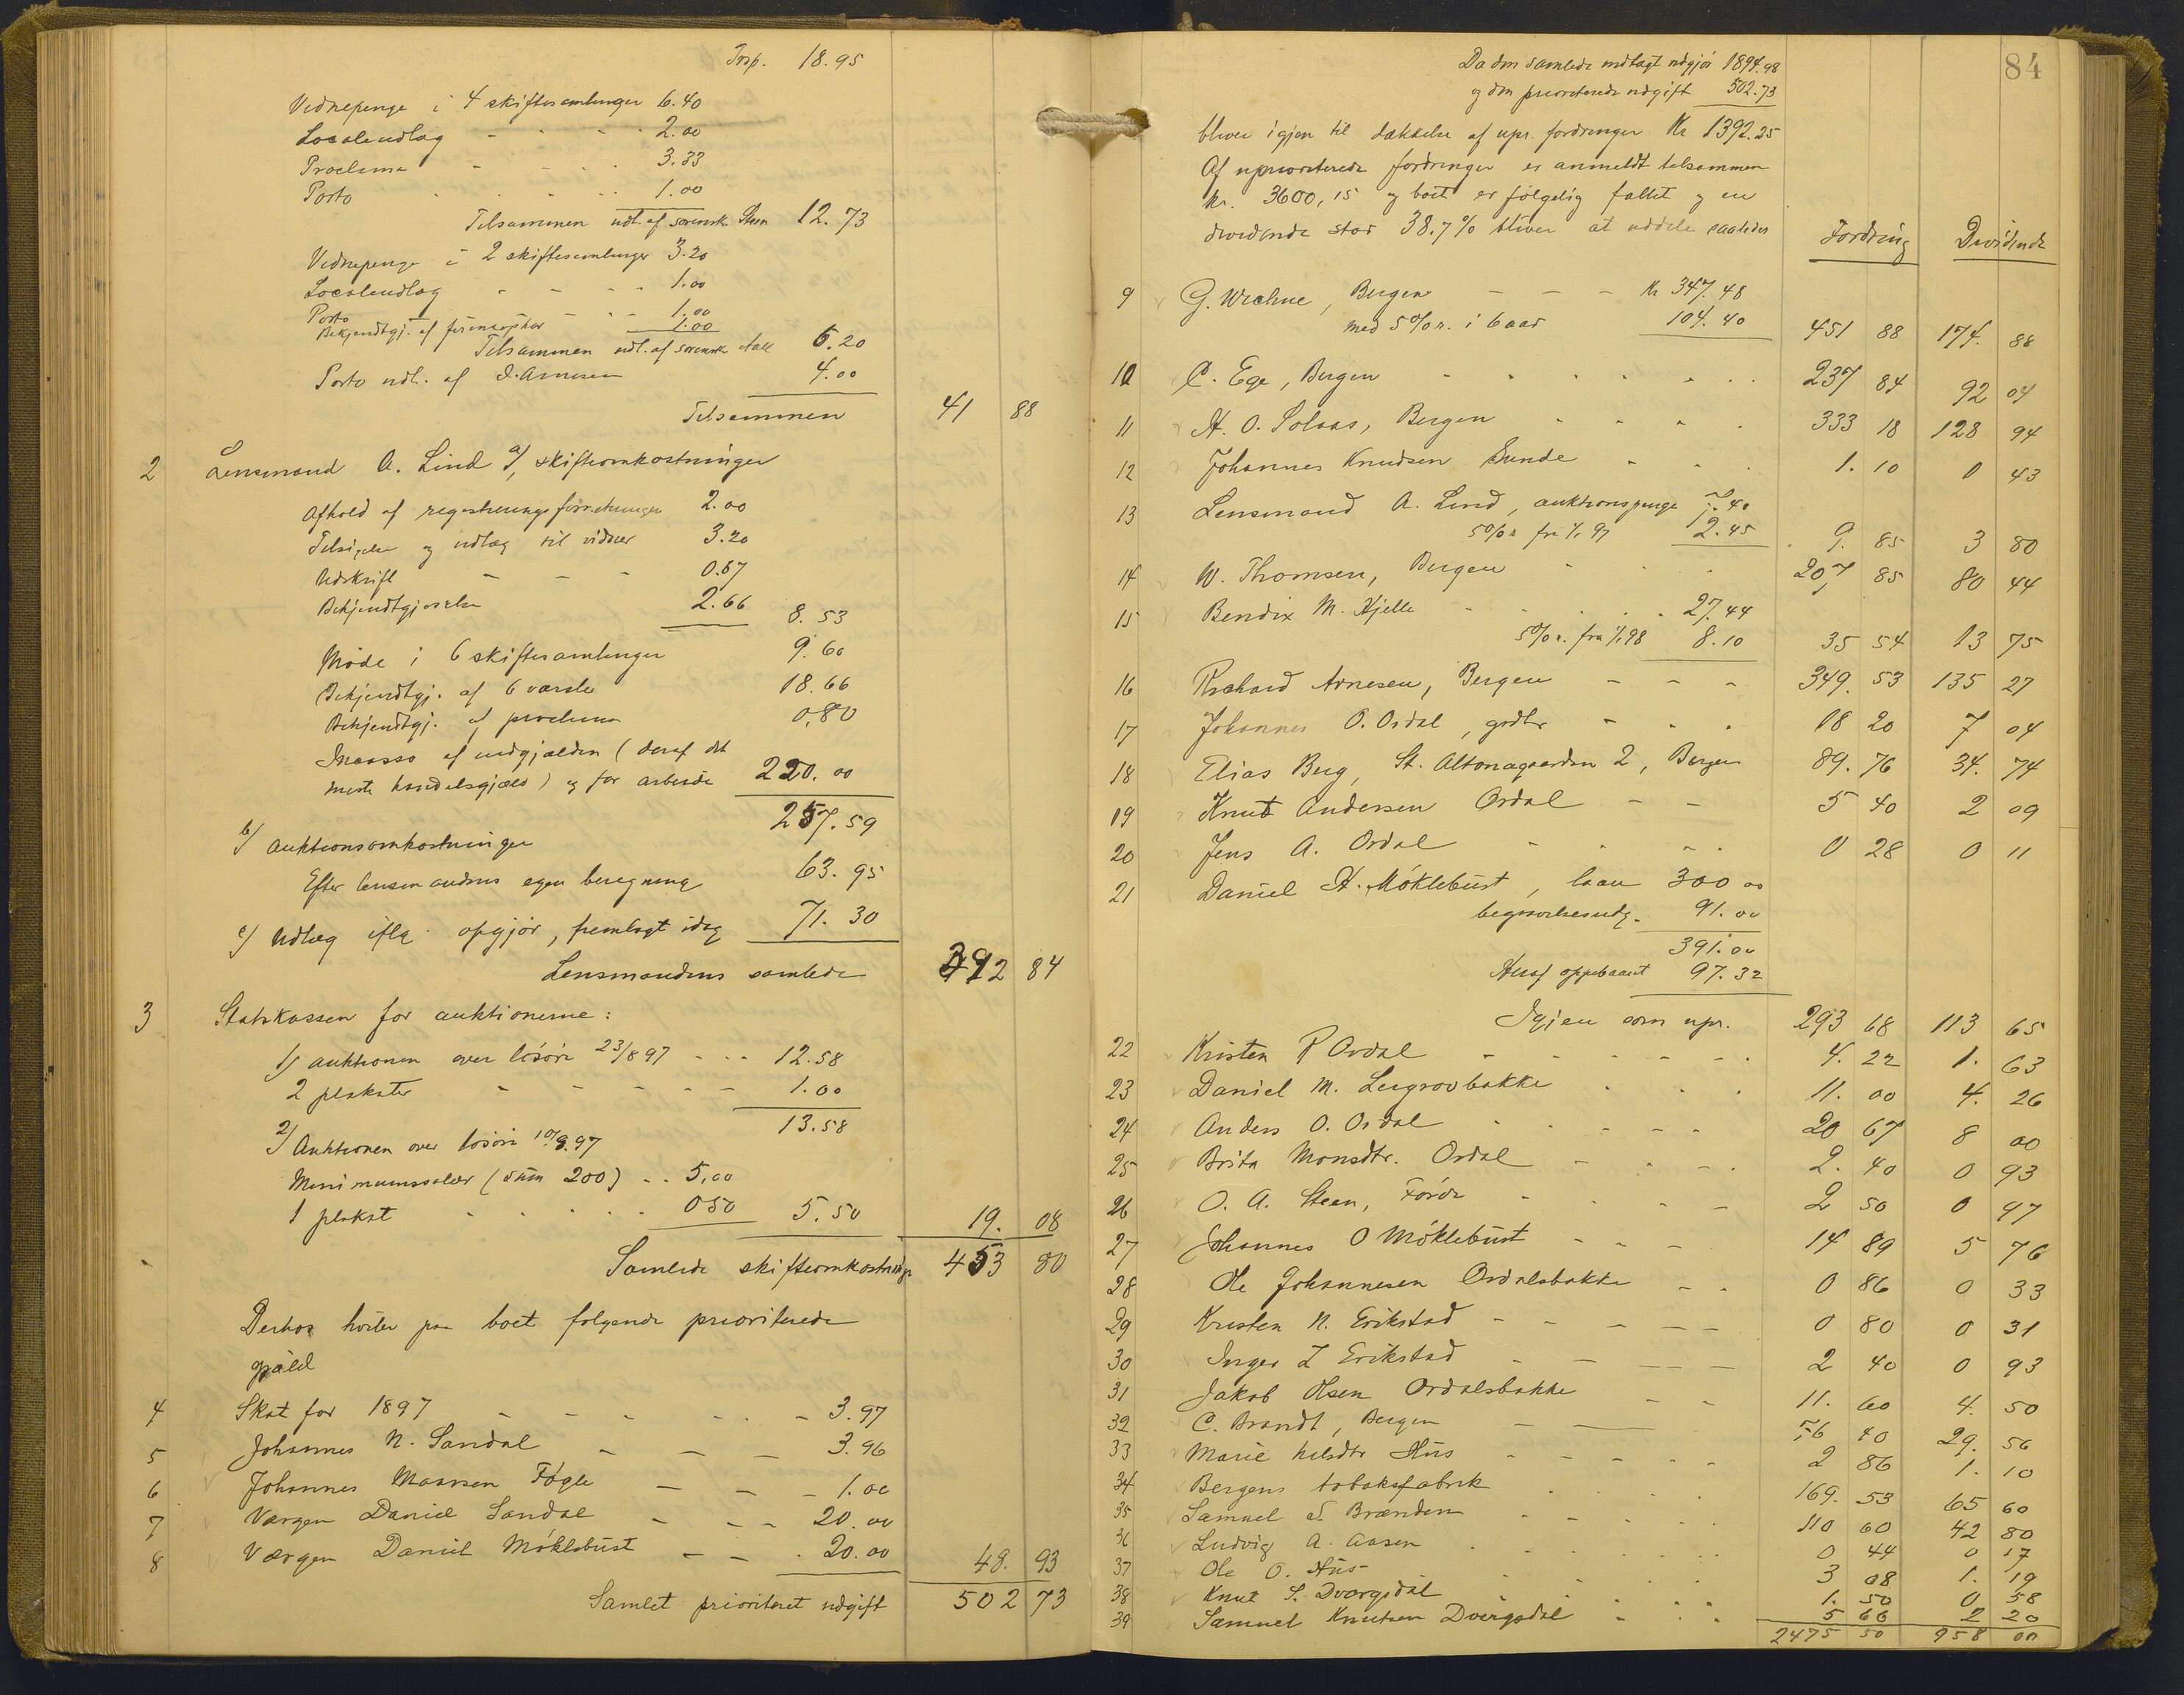 Trsp. 18.95
Vidnepenge i 4 skiftesamlinger 6.40
Localeudlæg - - - - 2.00
Proclama - - - - 3.33
Porto - - - - 1.00
Tilsammen udl. af sorensk. Steen 12.73
Vidnepenge i 2 skiftesamlinger 3.20
Localeudlæg - - - - 1.00
Porto - - - 1.00
Bekjendtgj. af 1.00
Tilsammen udl. af sorensk. 6.20
Porto udl. af J. Arnesen 4.00
Tilsammen 41 88
2 Lensmand A. Lind a/ skifteomkostninger
Afhold af registreringsforretningen 2.00
Tilsigelse og udlæg til vidner 3.20
Udskrift - - - 0.67
Bekjendtgjørelse 2.66 8.53
Møde i 6 skiftesamlinger 9.60
Bekjendtgj. af 6 varsler 18.66
Bekjendtgj. af proclama 0,80
Incasso af udgjælden (deraf det
meste handelsgjæld) og for arbeide 220.00
257.59
b/ Auktionsomkostninger
Efter lensmandens egen beregning 63.95
c/ Udlæg iflg. opgjør, fremlagt idag 71.30
Lensmandens samlede 392 84
3 Statskassen for auktionerne:
1/ auktionen over løsøre 23/8 97 - - - 12.58
2 plakater - - - - - 1.00
13.58
2/ Auktionen over løsøre 10/9.97
Minimumssalær (sum 200) - - 5,00
1 plakat - - - - - 0 50 5.50 19. 08
Samlede skifteomkostninger 453 80
Derhos hviler paa boet følgende prioriterede
gjæld
4 Skat for 1897 - - - - - - 3.97
5 Johannes N. Sandal - - - 3.96
6 Johannes Monsen Føgle - - - 1.00
7 Værgen Daniel Sandal - - - 20.00
8 Værgen Daniel Møklebust - - - 20.00 48. 93
Samlet prioriteret udgift 502 73
84
Da den samlede indtægt udgjør 1894.98
og den prioriterede udgift 502.73
bliver igjen til dækkelse af upr. fordringer Kr 1392.25
Af upriorterede fordringer er anmeldt tilsammen
kr. 3600,15 og boet er følgelig fallit og en
dividende stor 38.7% bliver at uddele saaledes Fordring Dividende
9 G. Wichne, Bergen - - - Kr 347.48
med 5% r. i 6 aar 104.40 451 88 174. 88
10 C. Ege, Bergen - - - - - - 237 84 92 04
11 H. O. Solaas, Bergen - - - - 333 18 128 94
12 Johannes Knudsen Sunde - - - 1. 10 0 43
13 Lensmand A. Lind, auktionspenge 7.40
5% r. fra 1/1 97 2.45 9. 85 3 80
14 W. Thomsen, Bergen - - - 207 85 80 44
15 Bendix M. Hjelle - - - - 27.44
5% r. fra 1/1 98 8.10 35 54 13 75
16 Richard Arnesen, Bergen - - - 349. 53 135 27
17 Johannes O. Ordal, - - - 18 20 7 04
18 Elias Berg, St. Altonagaarden 2, Bergen 89. 76 34. 74
19 Knut Andersen Ordal - - 5 40 2 09
20 Jens A. Ordal - - - - 0 28 0 11
21 Daniel H. Møklebust, laan 300 00
begravelsesudg. 91.00
391.00
Heraf oppebaaret 97.32
Igjen som upr. 293 68 113 65
22 Kristen P Ordal - - - - - - 4. 22 1. 63
23 Daniel M. Leigrovbakke - - - 11. 00 4. 26
24 Anders O. Ordal - - - - - 20 67 8 00
25 Brita Monsdtr. Ordal - - - - 2. 40 0 93
26 O. A. Steen, Førde - - - - 2 50 0 97
27 Johannes O Møklebust - - - 14 89 5 76
28 Ole Johannesen Ordalsbakke - - 0 86 0 33
29 Kristen N. Erikstad - - - - - 0 80 0 31
30 Inger L Erikstad - - - - 2 40 0 93
31 Jakob Olsen Ordalsbakke - - 11. 60 4. 50
32 C. Brandt, Bergen - - - 76 40 29. 56
33 Marie Nilsdtr Hus - - - - - 2 86 1. 10
34 Bergens tobaksfabrik - - - - 169. 53 65 60
35 Samuel S. Brænden - - - - - 110 60 42 80
36 Ludvig A. Aasen - - - - - 0 44 0 17
37 Ole O. Hus - - - - - 3 08 1. 19
38 Knut S. Dvergsdal - - - - 1. 50 0 58
39 Samuel Knutsen Dvergsdal - - - 5 66 2 20
2475 50 958 00